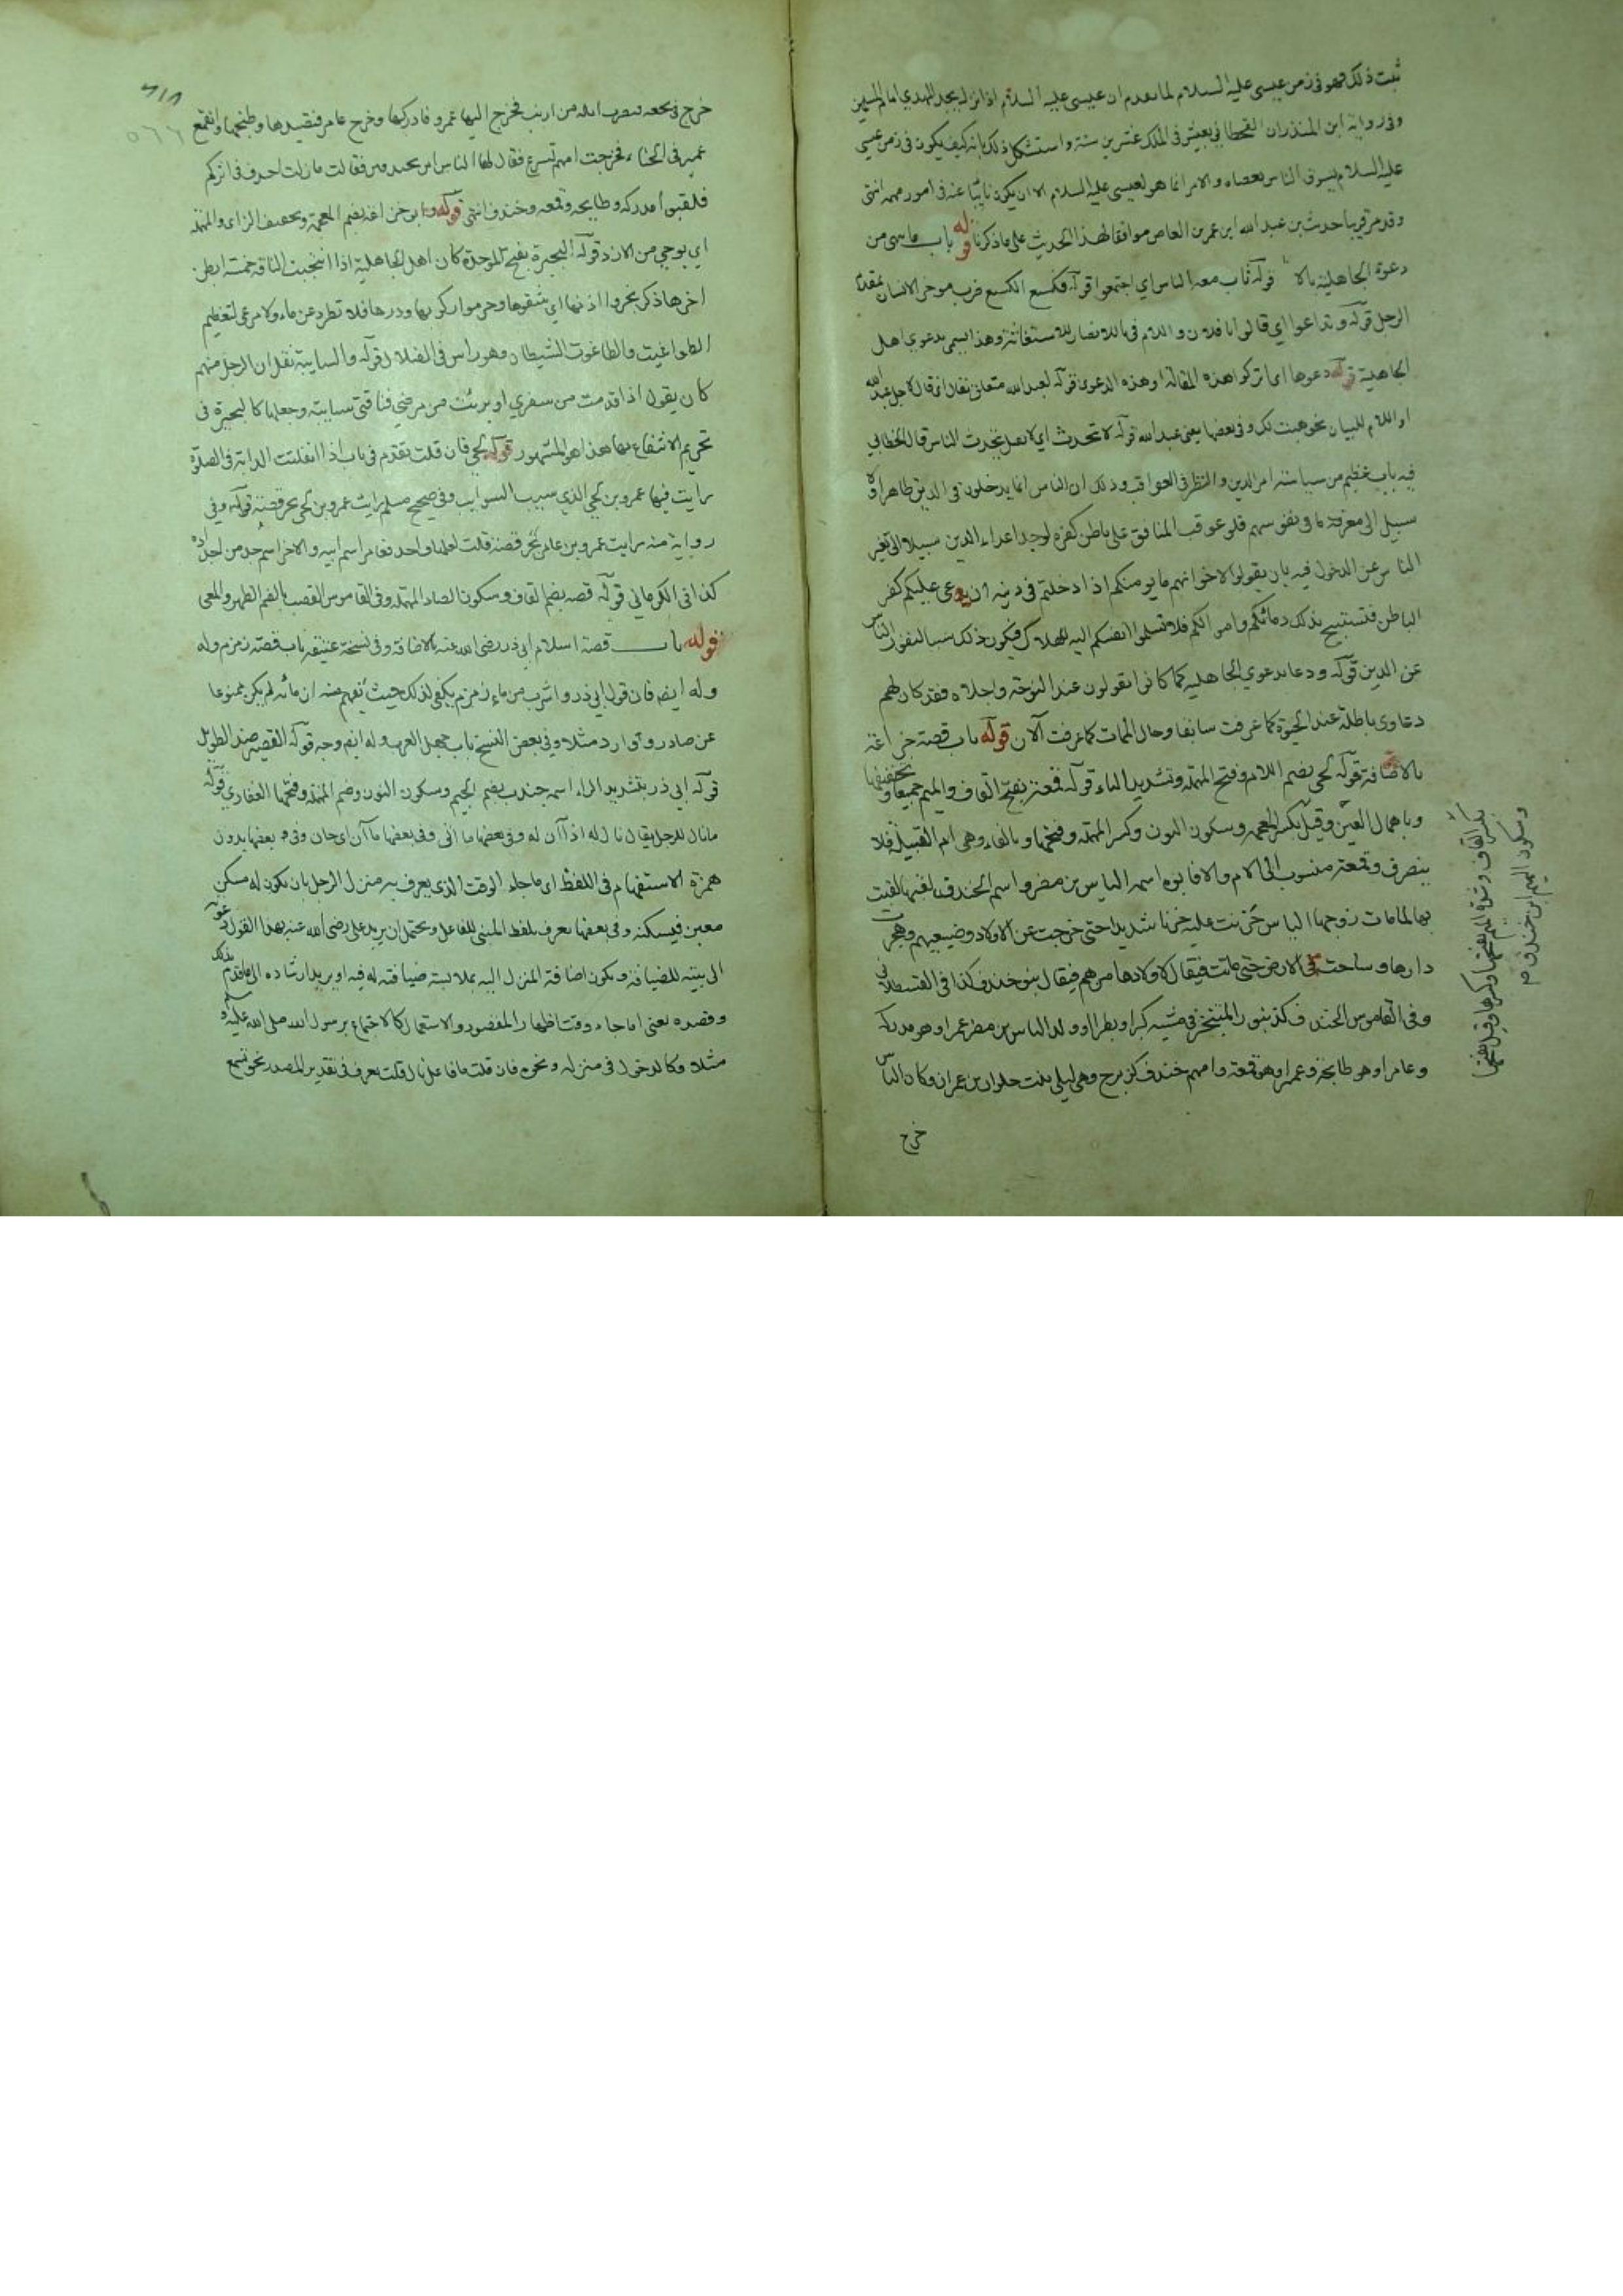 ثبت ذلك فهو في زمن عيسى عليه السلام لما تقدم ان عيسى عليه السلام اذا نزل يجد المهدي امام المسلمين
وفي رواية ابن المنذر ان القحطاني يعيش في الملك عشرين سنة واستشكل ذلك بانه كيف يكون في زمن عيسى
عليه السلام يسوق الناس بعصاه والامر انما هو لعيسى عليه السلام الا ان يكون نايبا عنه في امور مهمة انتهى
وقد مر قريبا حديث بن عبد الله ابن عمر بن العاص موافقا لهذا الحديث على ما ذكرنا قوله باب ما نهى من
دعوة الجاهلية بالا قوله ثاب معه الناس اي اجتمعوا قوله فكسع الكسع ضرب موخر الانسان بمقدم
الرجل قوله وتداعوا اي قالوا يا فلان واللام في ياللانصار للاستغاثة وهذا يسمى بدعوي اهل
الجاهلية قوله دعوها اي اتركوا هذه المقالة او هذه الدعوى قوله لعبد الله متعلق بقال اي قال لاجل عبد الله
او اللام للبيان نحو هيت لك وفي بعضها يعني عبد الله قوله لا تحدث اي لا نفعل يتحدث الناس قال الخطابي
فيه باب عظيم من سياسة امر الدين والنظر في العواقب وذلك ان الناس انما يدخلون في الدين ظاهرا ولا
سبيل الى معرفة ما في نفوسهم فلو عوقب المنافق على باطن كفره لوجد اعداء الدين سبيلا الى تنفير
الناس عن الدخول فيه بان يقولوا لاخوانهم ما يومنكم اذا دخلتم في دينه ان يدعى عليكم كفر
الباطن فتستبيح بذلك دمائكم واموالكم فلا تسلموا انفسكم اليه للهلاك فيكون ذلك سببا لنفور الناس
عن الدين قوله ودعا بدعوي الجاهلية كما كانوا يقولون عند النوحة واجلاه فقد كان لهم
دعاوى باطلة عند الحيوة كما عرفت سابقا وحال الممات كما عرفت الآن قوله باب قصة خزاعة
بالاضافة قوله لحي بضم اللام وفتح المهملة وتشديد الياء قوله قمعة بفتح القاف والميم جميعا وتخفيفها
وباهمال العين وقيل بكسر المعجمة وسكون النون وكسر المهملة وفتحها وبالفاء وهي ام القبيلة فلا
ينصرف وقمعة منسوب الى الام والا فابوه اسمه الياس بن مضر واسم الخندق لقبها لقبت
بها لما مات زوجها الياس حزنت عليه حزنا شديدا حتى خرجت عن الاولاد وضيعتهم وهجرت
دارها وساحت في الارض حتى ماتت فيقال لاولادها من هم فيقال بنو خندف كذا في القسطلاني
وفي القاموس الخندف كزنبور المتبختر في مشيه كبرا وبطرا وولد الياس بن مضر عمرا وهو مدركة
وعامرا وهو طابخة وعميرا وهو قمعة وامهم خندف كزبرج وهي ليلى بنت حلوان بن عمران وكان الياس
خرج
بكسر القاف وشدة الميم بفتحها وكسرها وقيل بفتحها
وسكون الميم ابن خندف م
٥٦٦
خرج في نجعة فنفرت ابله من ارنب فخرج اليها عمرو فادركها وخرج عامر فتصيدها وطبخها وانقمع
عمير في الخباء فخرجت امهم تسرع فقال لها الياس اين تخندفين فقالت ما زلت اخندف في اثركم
فلقبوا مدركة وطابخة وقمعة وخندف انتهى قوله ابو خزاعة بضم المعجمة وتخفيف الزاى والمهملة
اي بو حي من الازد قوله البحيرة بفتح الموحدة كان اهل الجاهلية اذا انتجبت الناقة خمسة ابطن
اخرها ذكر بحروا اذنها اي شقوها وحرموا ركوبها ودرها فلا تطرد عن ماء ولا مرعى لتعظيم
الطواغيت والطاغوت الشيطان وهو راس في الضلال قوله والسايبة نقل ان الرجل منهم
كان يقول اذا قدمت من سفري او برئت من مرضي فناقتي سايبة وجعلها كالبحيرة في
تحريم الانتفاع بها هذا هو المشهور قوله لحي فان قلت تقدم في باب اذا انفلتت الدابة في الصلوة
رايت فيها عمرو بن لحي الذي سيب السوايب وفي صحيح مسلم رايت عمرو بن لحي يجر قصبة قوله وفي
رواية منه رايت عمرو بن عامر يجر قصبة قلت لعلهما واحد فعامر اسم ابيه والاخر اسم جد من اجداده
كذا في الكرماني قوله قصبه بضم القاف وسكون الصاد المهملة وفي القاموس القصب بالضم الظهر والمعى
قوله باب قصة اسلام ابي ذر رضي الله عنه بالاضافة وفي نسخة عتيقة باب قصة زمزم وله
وله ايضا فان قول ابي ذر واشرب من ماء زمزم يكفي لذلك حيث يفهم منه ان مائه لم يكن ممنوعا
عن صادر ووارد مثلا وفي بعض النسخ باب جهل العرب وله ايضا وجه قوله القصير ضد الطويل
قوله ابي ذر بتشديد الراء اسمه جندب بضم الجيم وسكون النون وضم المهملة وفتحها الغفاري قوله
ما نال للرجل يقال نال له اذا آن له وفي بعضها ما انى وفي بعضها ما آن اي حان وفي بعضها بدون
همزة الاستفهام في اللفظ اي ما جاء الوقت الذي يعرف به منزل الرجل بان يكون له مسكن
معين فيسكنه وفي بعضها يعرف بلفظ المبني للفاعل ويحتمل ان يريد علي رضي الله عنه بهذا القول دعوته
الى بيته للضيافة ويكون اضافة المنزل اليه بملابسة ضيافته له فيه او يريد ارشاده الى ما قدم لذلك
وقصده يعني اما جاء وقت اظهار المقصود والاستعمال كالاجتماع برسول الله صلى الله عليه وسلم
مثلا وكالدخول في منزله ونحوه فان قلت ما فاعل نال قلت يعرف في تقدير المصدر نحو تسمع